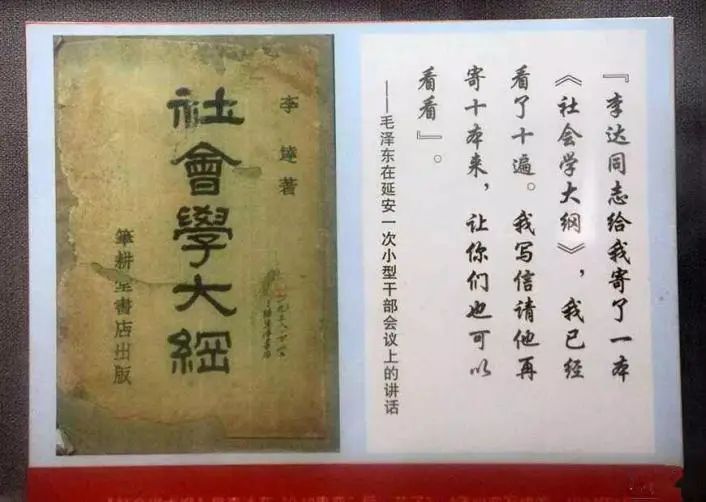 李達著
社會學大綱
筆耕堂書店出版
『李达同志给我寄了一本
《社会学大纲》，我已经
看了十遍。我写信请他再
寄十本来，让你们也可以
看看』。
——毛泽东在延安一次小型干部会议上的讲话